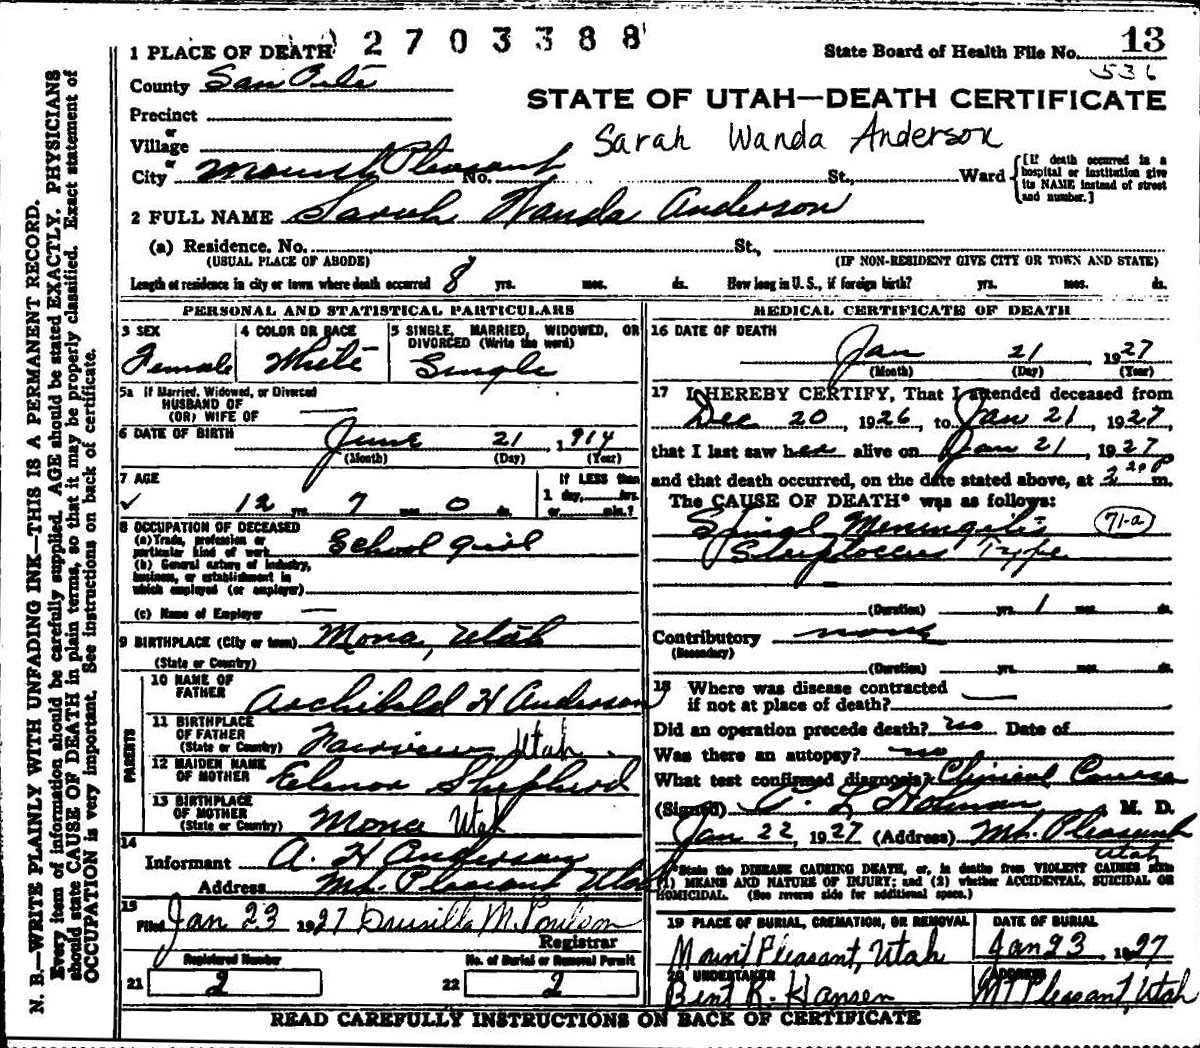 2703388
1 PLACE OF DEATH
State Board of Health File No. 13
536
County San Pete
STATE OF UTAH—DEATH CERTIFICATE
Precinct
or
Village
Sarah Wanda Anderson
or
City Mount Pleasant No. St., Ward
[If death occurred in a hospital or institution give its NAME instead of street and number.]
2 FULL NAME Sarah Wanda Anderson
(a) Residence. No. St.,
(USUAL PLACE OF ABODE) (IF NON-RESIDENT GIVE CITY OR TOWN AND STATE)
Length of residence in city or town where death occurred 8 yrs. mos. ds. How long in U. S., if foreign birth? yrs. mos. ds.
PERSONAL AND STATISTICAL PARTICULARS
3 SEX
Female
4 COLOR OR RACE
White
5 SINGLE, MARRIED, WIDOWED, OR DIVORCED (Write the word)
Single
5a If Married, Widowed, or Divorced
HUSBAND OF
(OR) WIFE OF
6 DATE OF BIRTH June 21, 1914
(Month) (Day) (Year)
7 AGE
12 yrs. 7 mos. 0 ds.
If LESS than
1 day, hrs.
or min.?
8 OCCUPATION OF DECEASED
(a) Trade, profession or
particular kind of work School girl
(b) General nature of industry,
business, or establishment in
which employed (or employer)
(c) Name of Employer
9 BIRTHPLACE (City or town) Mona, Utah
(State or Country)
PARENTS
10 NAME OF
FATHER Archibald H Anderson
11 BIRTHPLACE
OF FATHER
(State or Country) Fairview Utah
12 MAIDEN NAME
OF MOTHER Elenor Shepherd
13 BIRTHPLACE
OF MOTHER
(State or Country) Mona Utah
14
Informant A. H Anderson
Address Mt. Pleasant Utah
15
Filed Jan 23 1927 Drusilla M. Poulson
Registrar
Registered Number
21 2
No. of Burial or Removal Permit
22 2
MEDICAL CERTIFICATE OF DEATH
16 DATE OF DEATH
Jan 21, 1927
(Month) (Day) (Year)
17 I HEREBY CERTIFY, That I attended deceased from
Dec 20, 1926, to Jan 21, 1927
that I last saw her alive on Jan 21, 1927
and that death occurred, on the date stated above, at m.
The CAUSE OF DEATH* was as follows:
Spinal Meningitis 71-a
Streptoccus Type
(Duration) yrs. 1 mos. ds.
Contributory none
(Secondary)
(Duration) yrs. mos. ds.
18 Where was disease contracted
if not at place of death?
Did an operation precede death? no Date of
Was there an autopsy? no
What test confirmed diagnosis? Clinical Course
(Signed) C L Holman M. D.
Jan 22, 1927 (Address) Mt. Pleasant
Utah
*State the DISEASE CAUSING DEATH, or, in deaths from VIOLENT CAUSES state
(1) MEANS AND NATURE OF INJURY; and (2) whether ACCIDENTAL, SUICIDAL OR
HOMICIDAL. (See reverse side for additional space.)
19 PLACE OF BURIAL, CREMATION, OR REMOVAL
Mount Pleasant, Utah
DATE OF BURIAL
Jan 23 1927
20 UNDERTAKER
Bent R. Hansen
ADDRESS
Mt Pleasant, Utah
READ CAREFULLY INSTRUCTIONS ON BACK OF CERTIFICATE
N. B.—WRITE PLAINLY WITH UNFADING INK—THIS IS A PERMANENT RECORD.
Every item of information should be carefully supplied. AGE should be stated EXACTLY. PHYSICIANS
should state CAUSE OF DEATH in plain terms, so that it may be properly classified. Exact statement of
OCCUPATION is very important. See instructions on back of certificate.